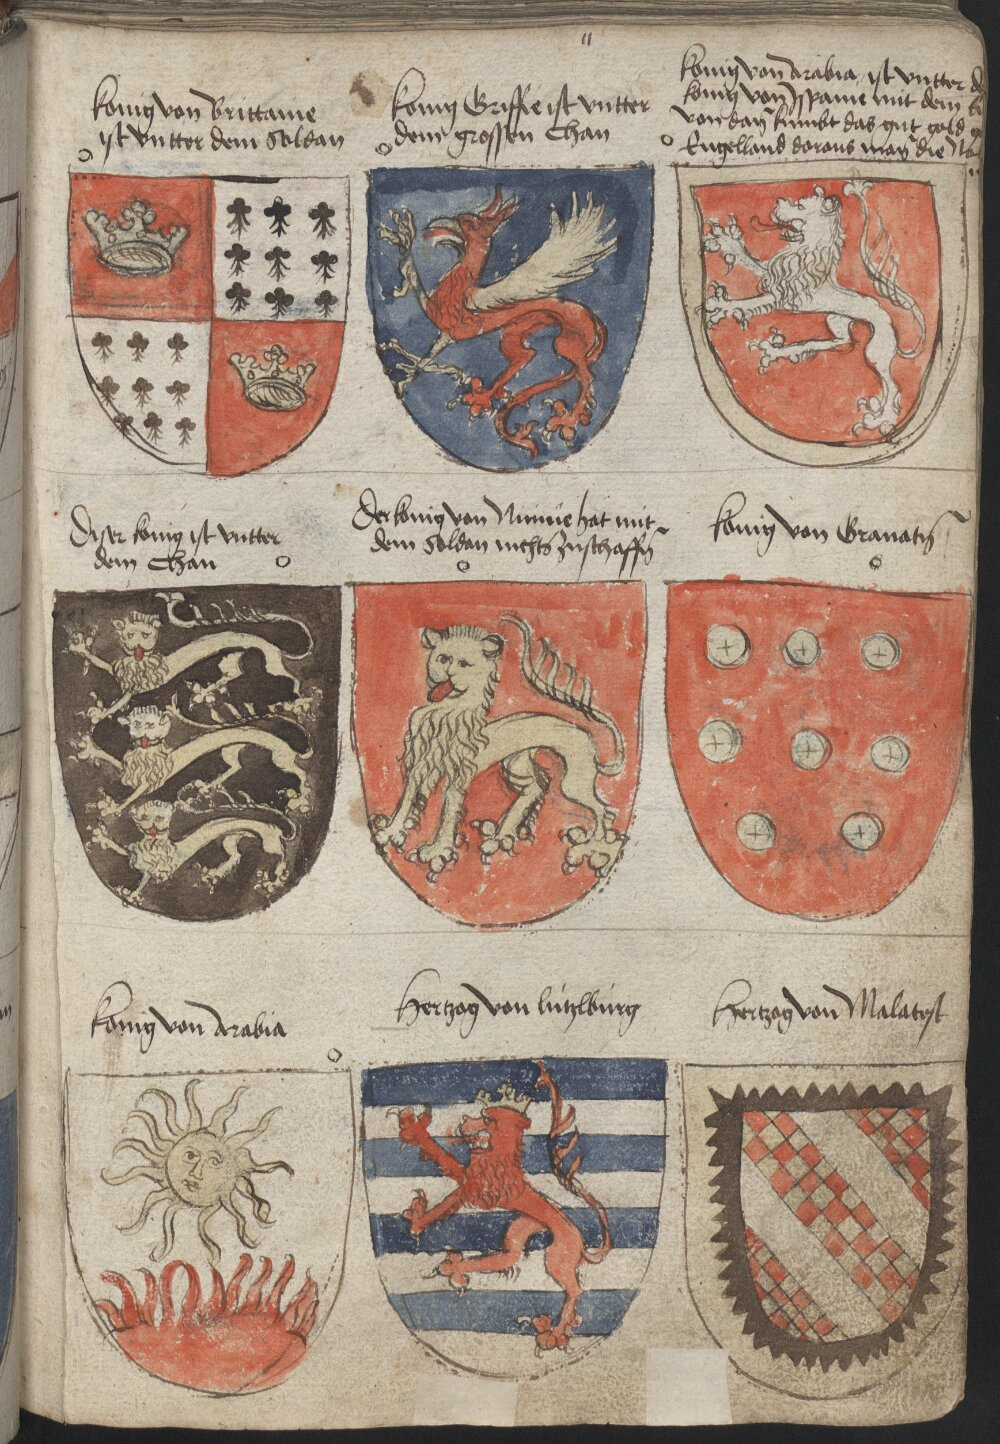 11
konig von Brittanie
ist vntter dem Soldan
konig Griffie ist vntter
dem grossen Chan
konig von arabia ist vntter d
konig von Ispanie mit dem
von dan kumbt das gut gold
Engelland doraus man die No
Diser konig ist vntter
dem Chan
Der konig von Niniue hat mit
dem Soldan nichts zuschaffen
konig von Granatis
konig von arabia
Hertzog von lützlbürg
Hertzog von Malatest